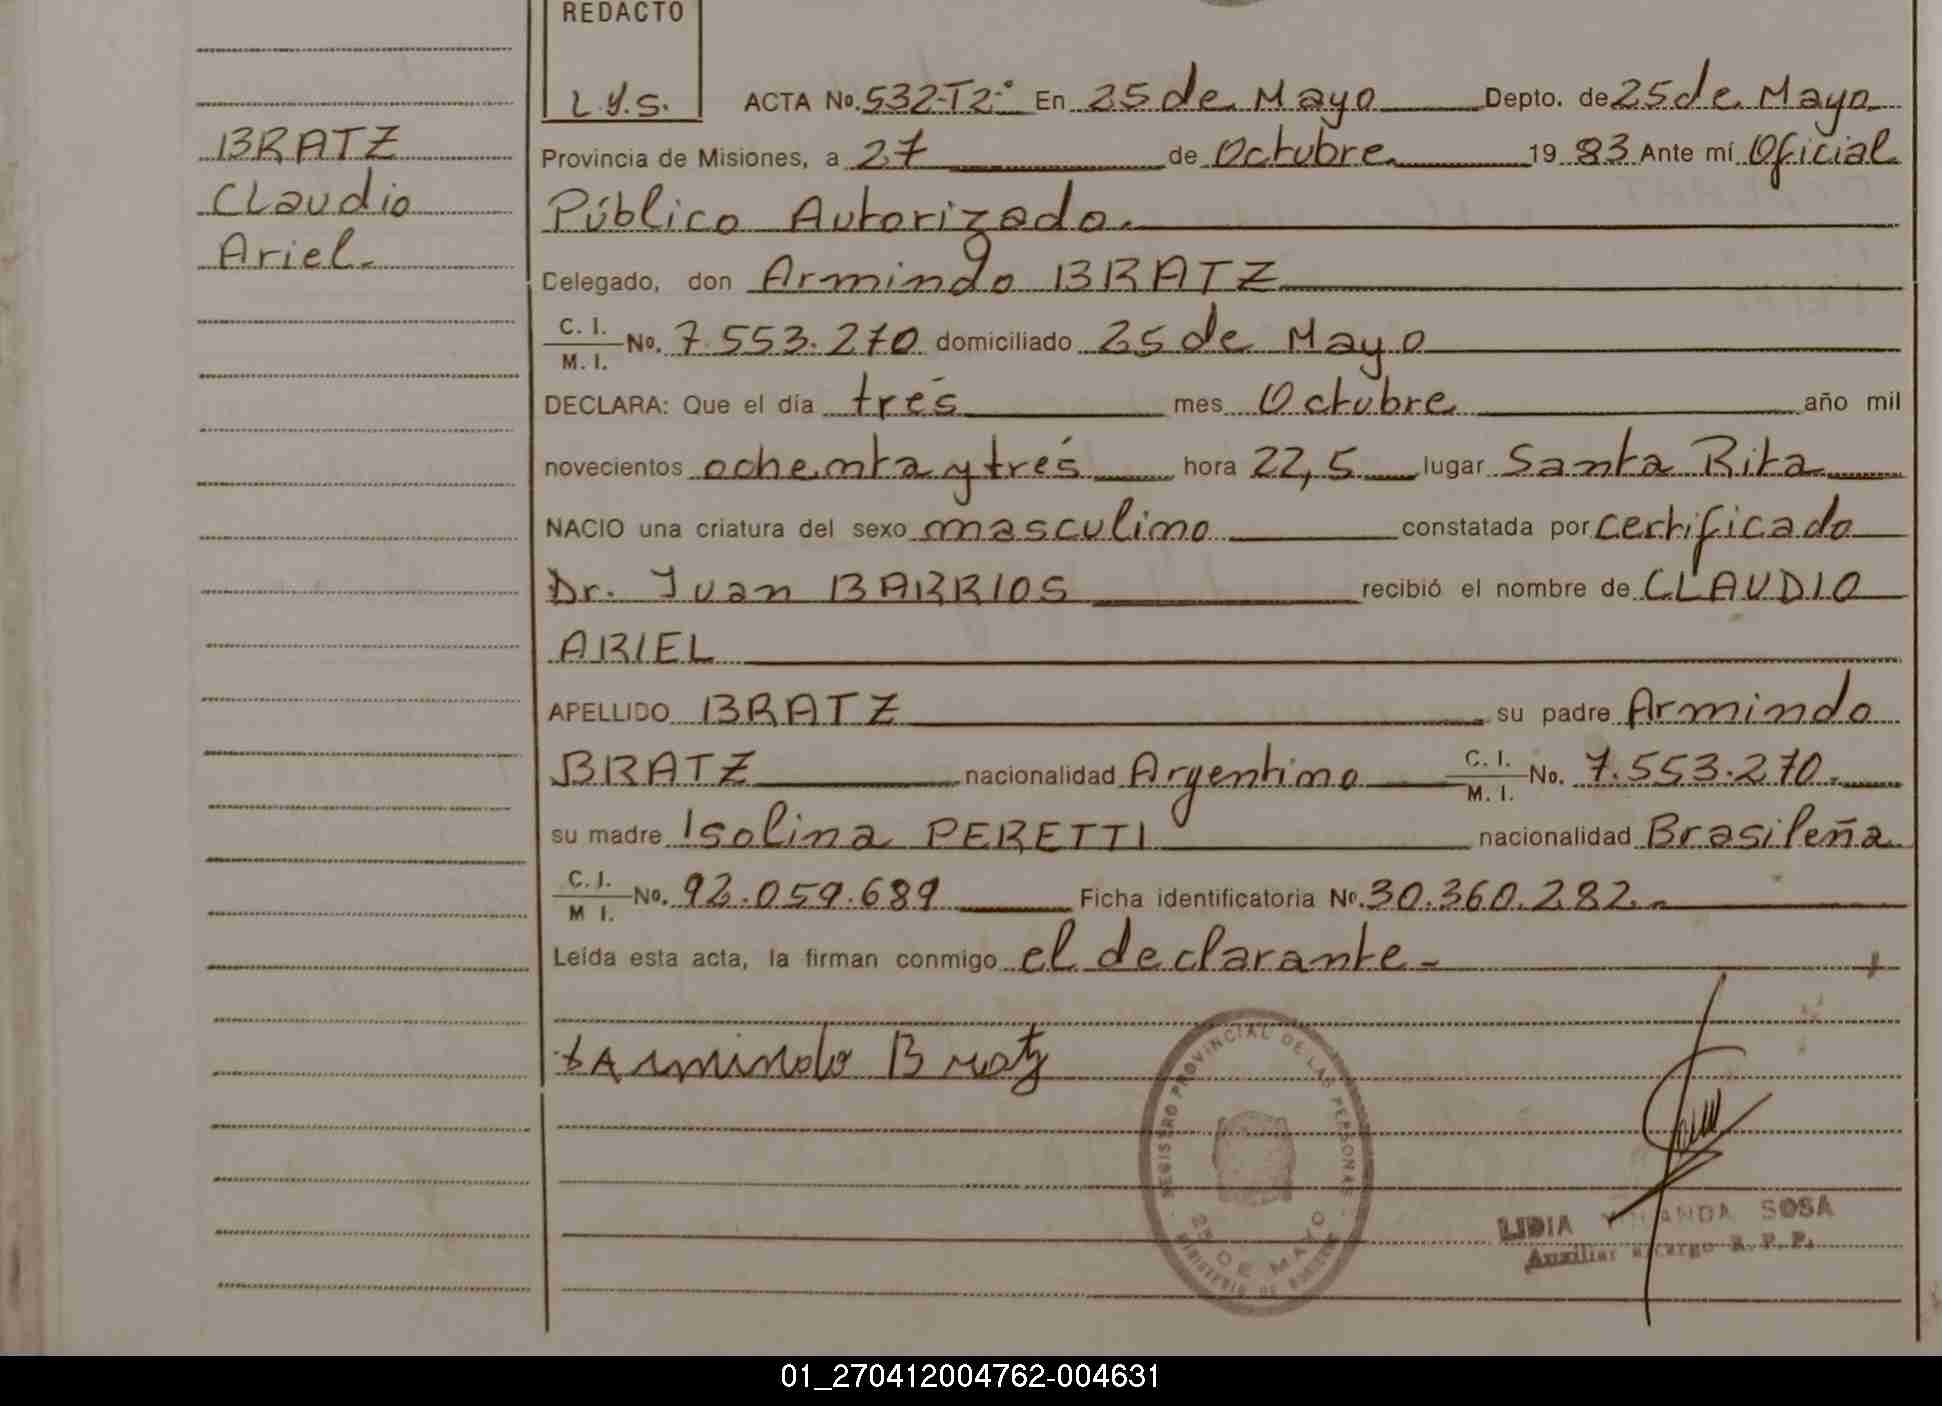 REDACTO
L.Y.S.
BRATZ
Claudio
Ariel.
ACTA No. 532-T2-° En 25 de Mayo Depto. de 25 de Mayo
Provincia de Misiones, a 27 de Octubre 19 83 Ante mí Oficial
Público Autorizado.
Celegado, don Armindo BRATZ
C. I. / M. I. No. 7.553.270 domiciliado 25 de Mayo
DECLARA: Que el día trés mes Octubre año mil
novecientos ochenta y trés hora 22,5 lugar Santa Rita
NACIO una criatura del sexo masculino constatada por certificado
Dr. Juan BARRIOS recibió el nombre de CLAUDIO
ARIEL
APELLIDO BRATZ su padre Armindo
BRATZ nacionalidad Argentino C. I. / M. I. No. 7.553.270.
su madre Isolina PERETTI nacionalidad Brasileña
C. I. / M I. No. 92.059.689 Ficha identificatoria No. 30.360.282.-
Leída esta acta, la firman conmigo el declarante.-
Armindo Bratz
REGISTRO PROVINCIAL DE LAS PERSONAS
25 DE MAYO
LIDIA SOSA
Auxiliar a cargo R. P. P.
01_270412004762-004631